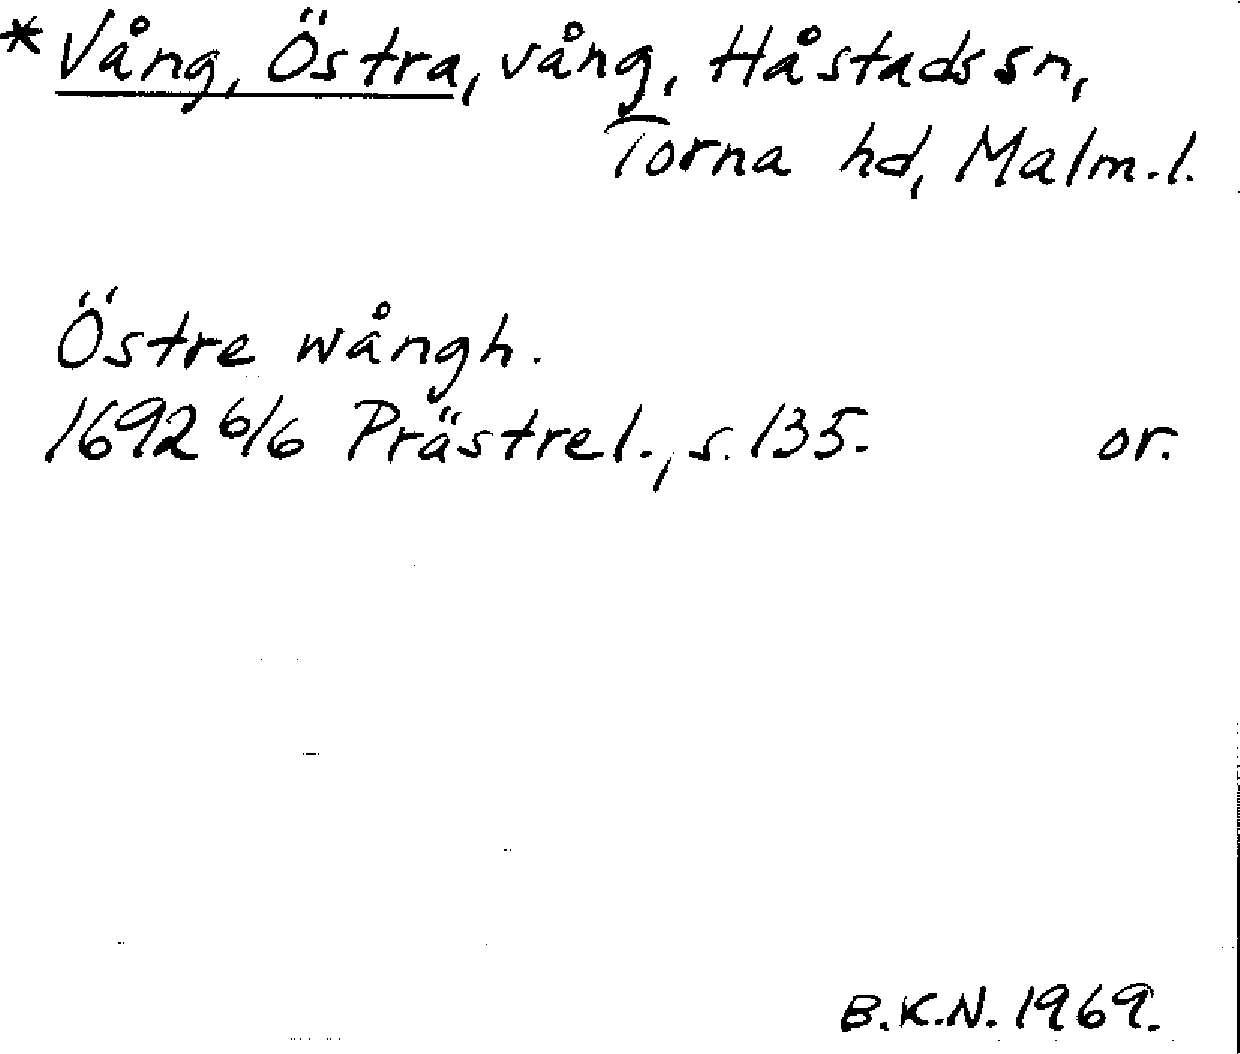 *Vång, Östra, vång, Håstads sn,
Torna hd, Malm.l.
Östre wångh.
1692 6/6 Prästrel., s. 135. or.
B.K.N. 1969.